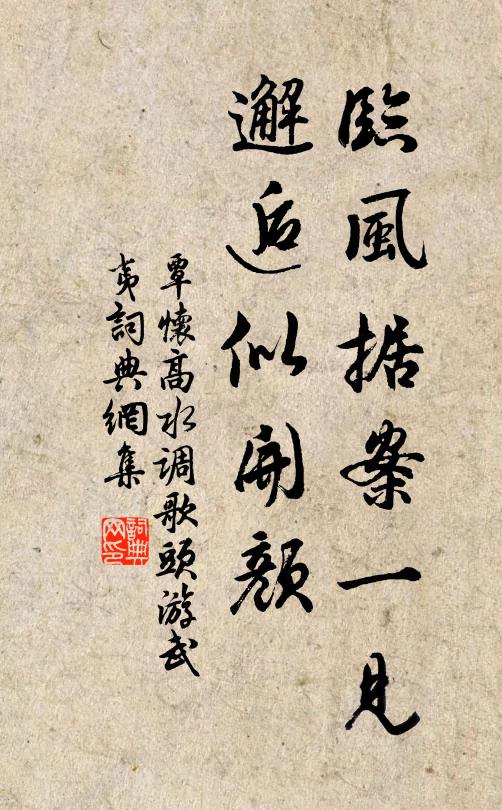 臨風据案一見
邂逅似開顏
覃懷高水调歌頭游武
夷詞典網集
詞典网印